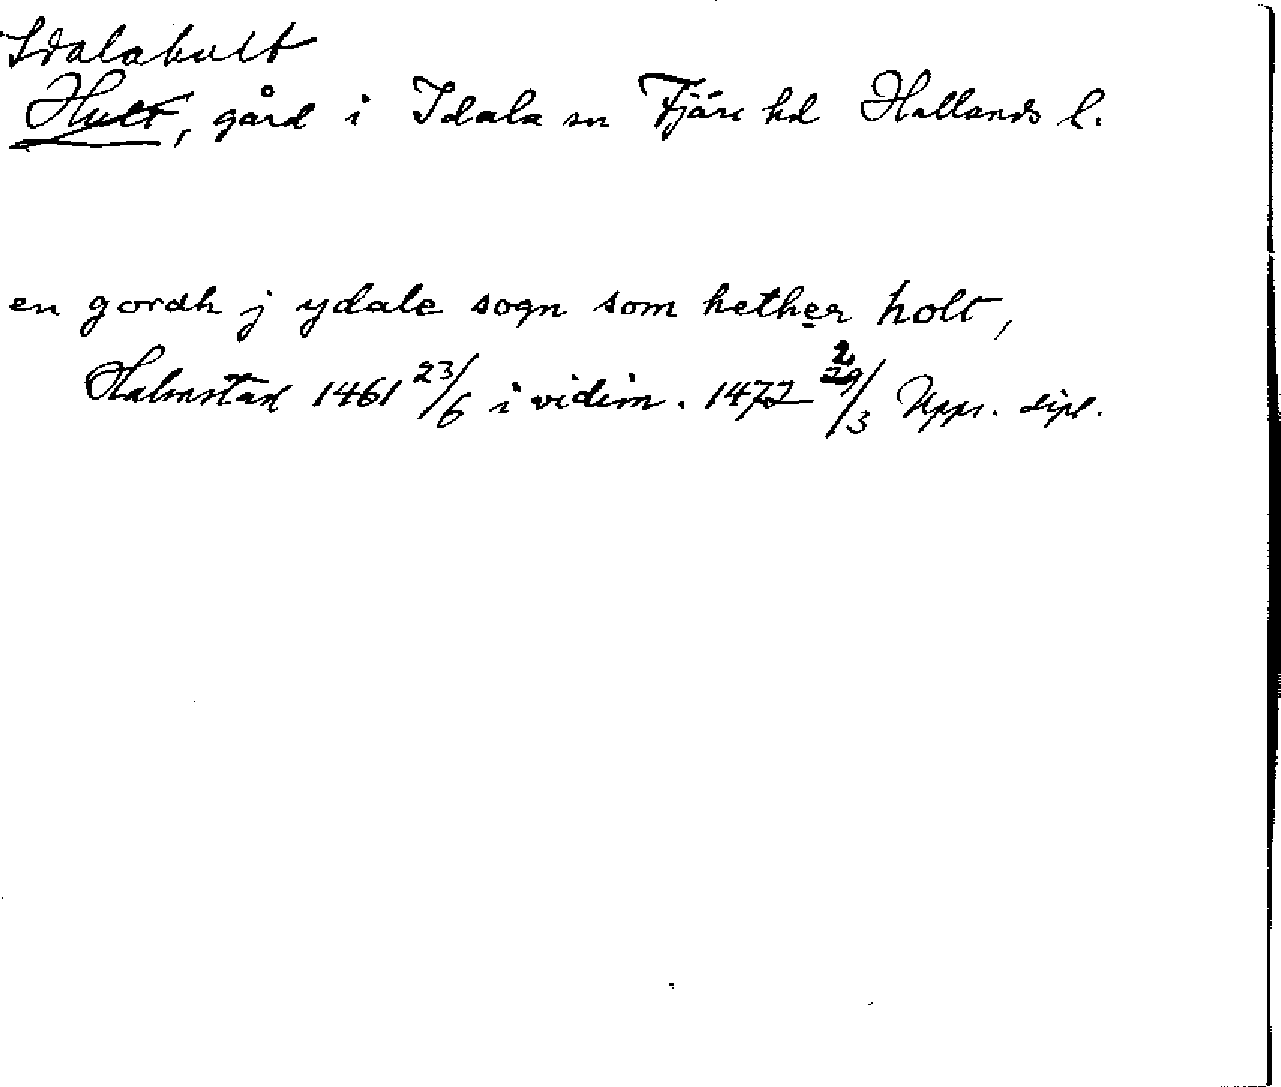 Idalahult
Hult, gård i Idala sn Fjäre hd Hallands l.
en gordh j ydale sogn som hether holt,
Halmstad 1461 23/6 i vidim. 1472 2/3 Upps. dipl.